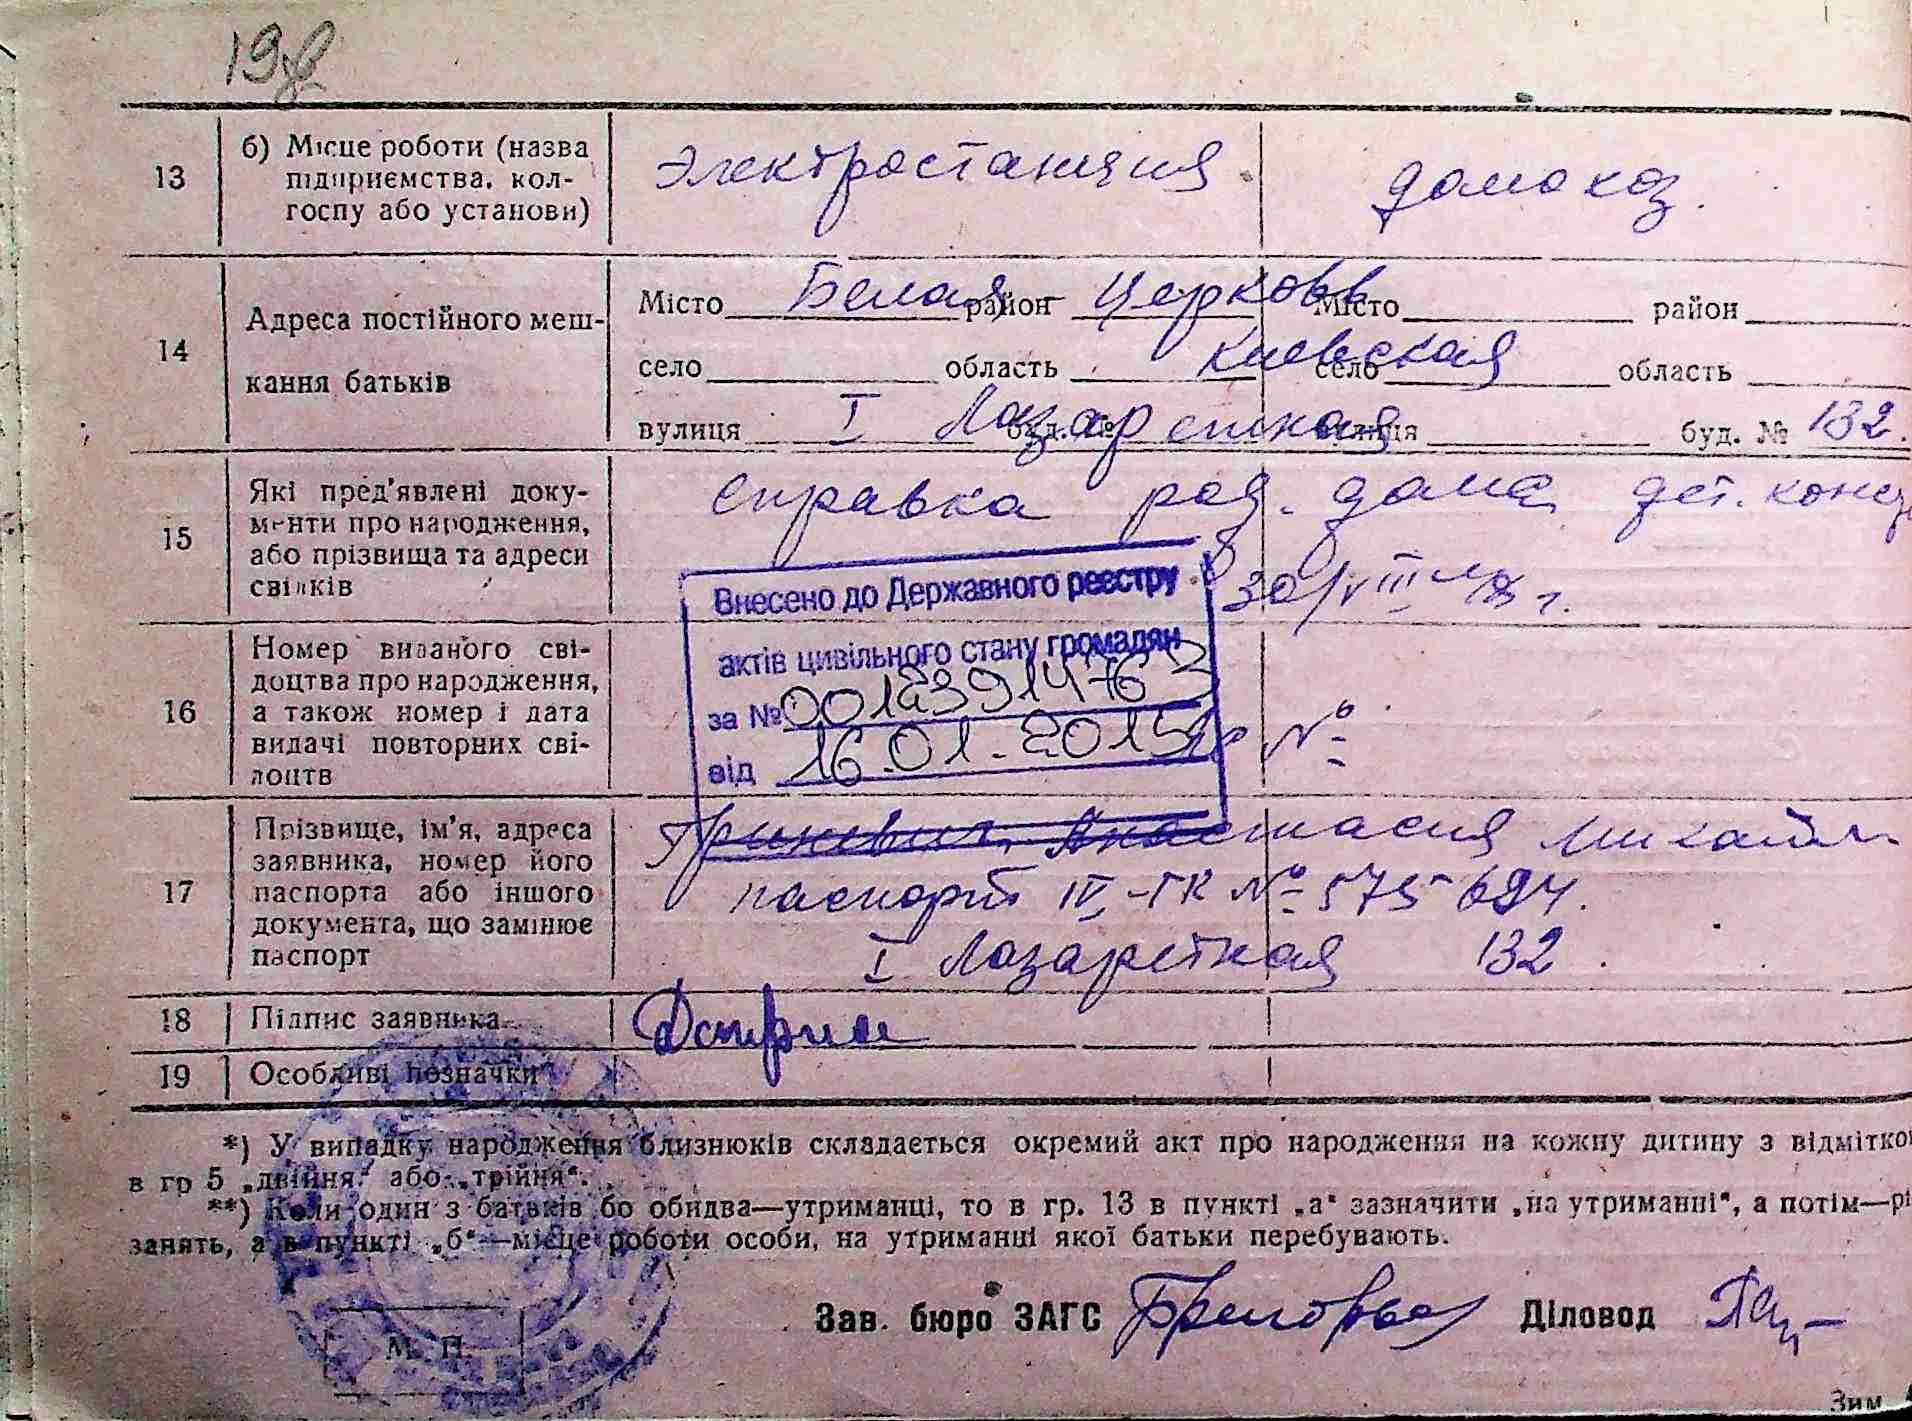 19
13
б) Місце роботи (назва
підприємства, кол-
госпу або установи)
Электростанция
домохоз.
14
Адреса постійного меш-
кання батьків
Місто Белая район Церковь Місто район
село область Киевская село область
вулиця I Лазаретная буд. № вулиця буд. № 132.
15
Які пред'явлені доку-
менти про народження,
або прізвища та адреси
свідків
справка род. дома дет. конс
30/VIII
Внесено до Державного реєстру
актів цивільного стану громадян
за № 00123914763
від 16.01.2015
16
Номер виданого сві-
доцтва про народження,
а також номер і дата
видачі повторних сві-
доцтв
№
17
Прізвище, ім'я, адреса
заявника, номер його
паспорта або іншого
документа, що замінює
паспорт
Гриневич Анастасия Михайл.
паспорт IV-ГК № 575694.
I Лазаретная 132.
18
Підпис заявника
19
Особливі позначки
*) У випадку народження близнюків складається окремий акт про народження на кожну дитину з відмітко
в гр 5 „двійня" або „трійня".
**) Коли один з батьків бо обидва—утриманці, то в гр. 13 в пункті „а" зазначити „на утриманні", а потім—рі
занять, а в пункті „б"—місце роботи особи, на утриманні якої батьки перебувають.
Зав. бюро ЗАГС
Діловод
М. П.
Зим